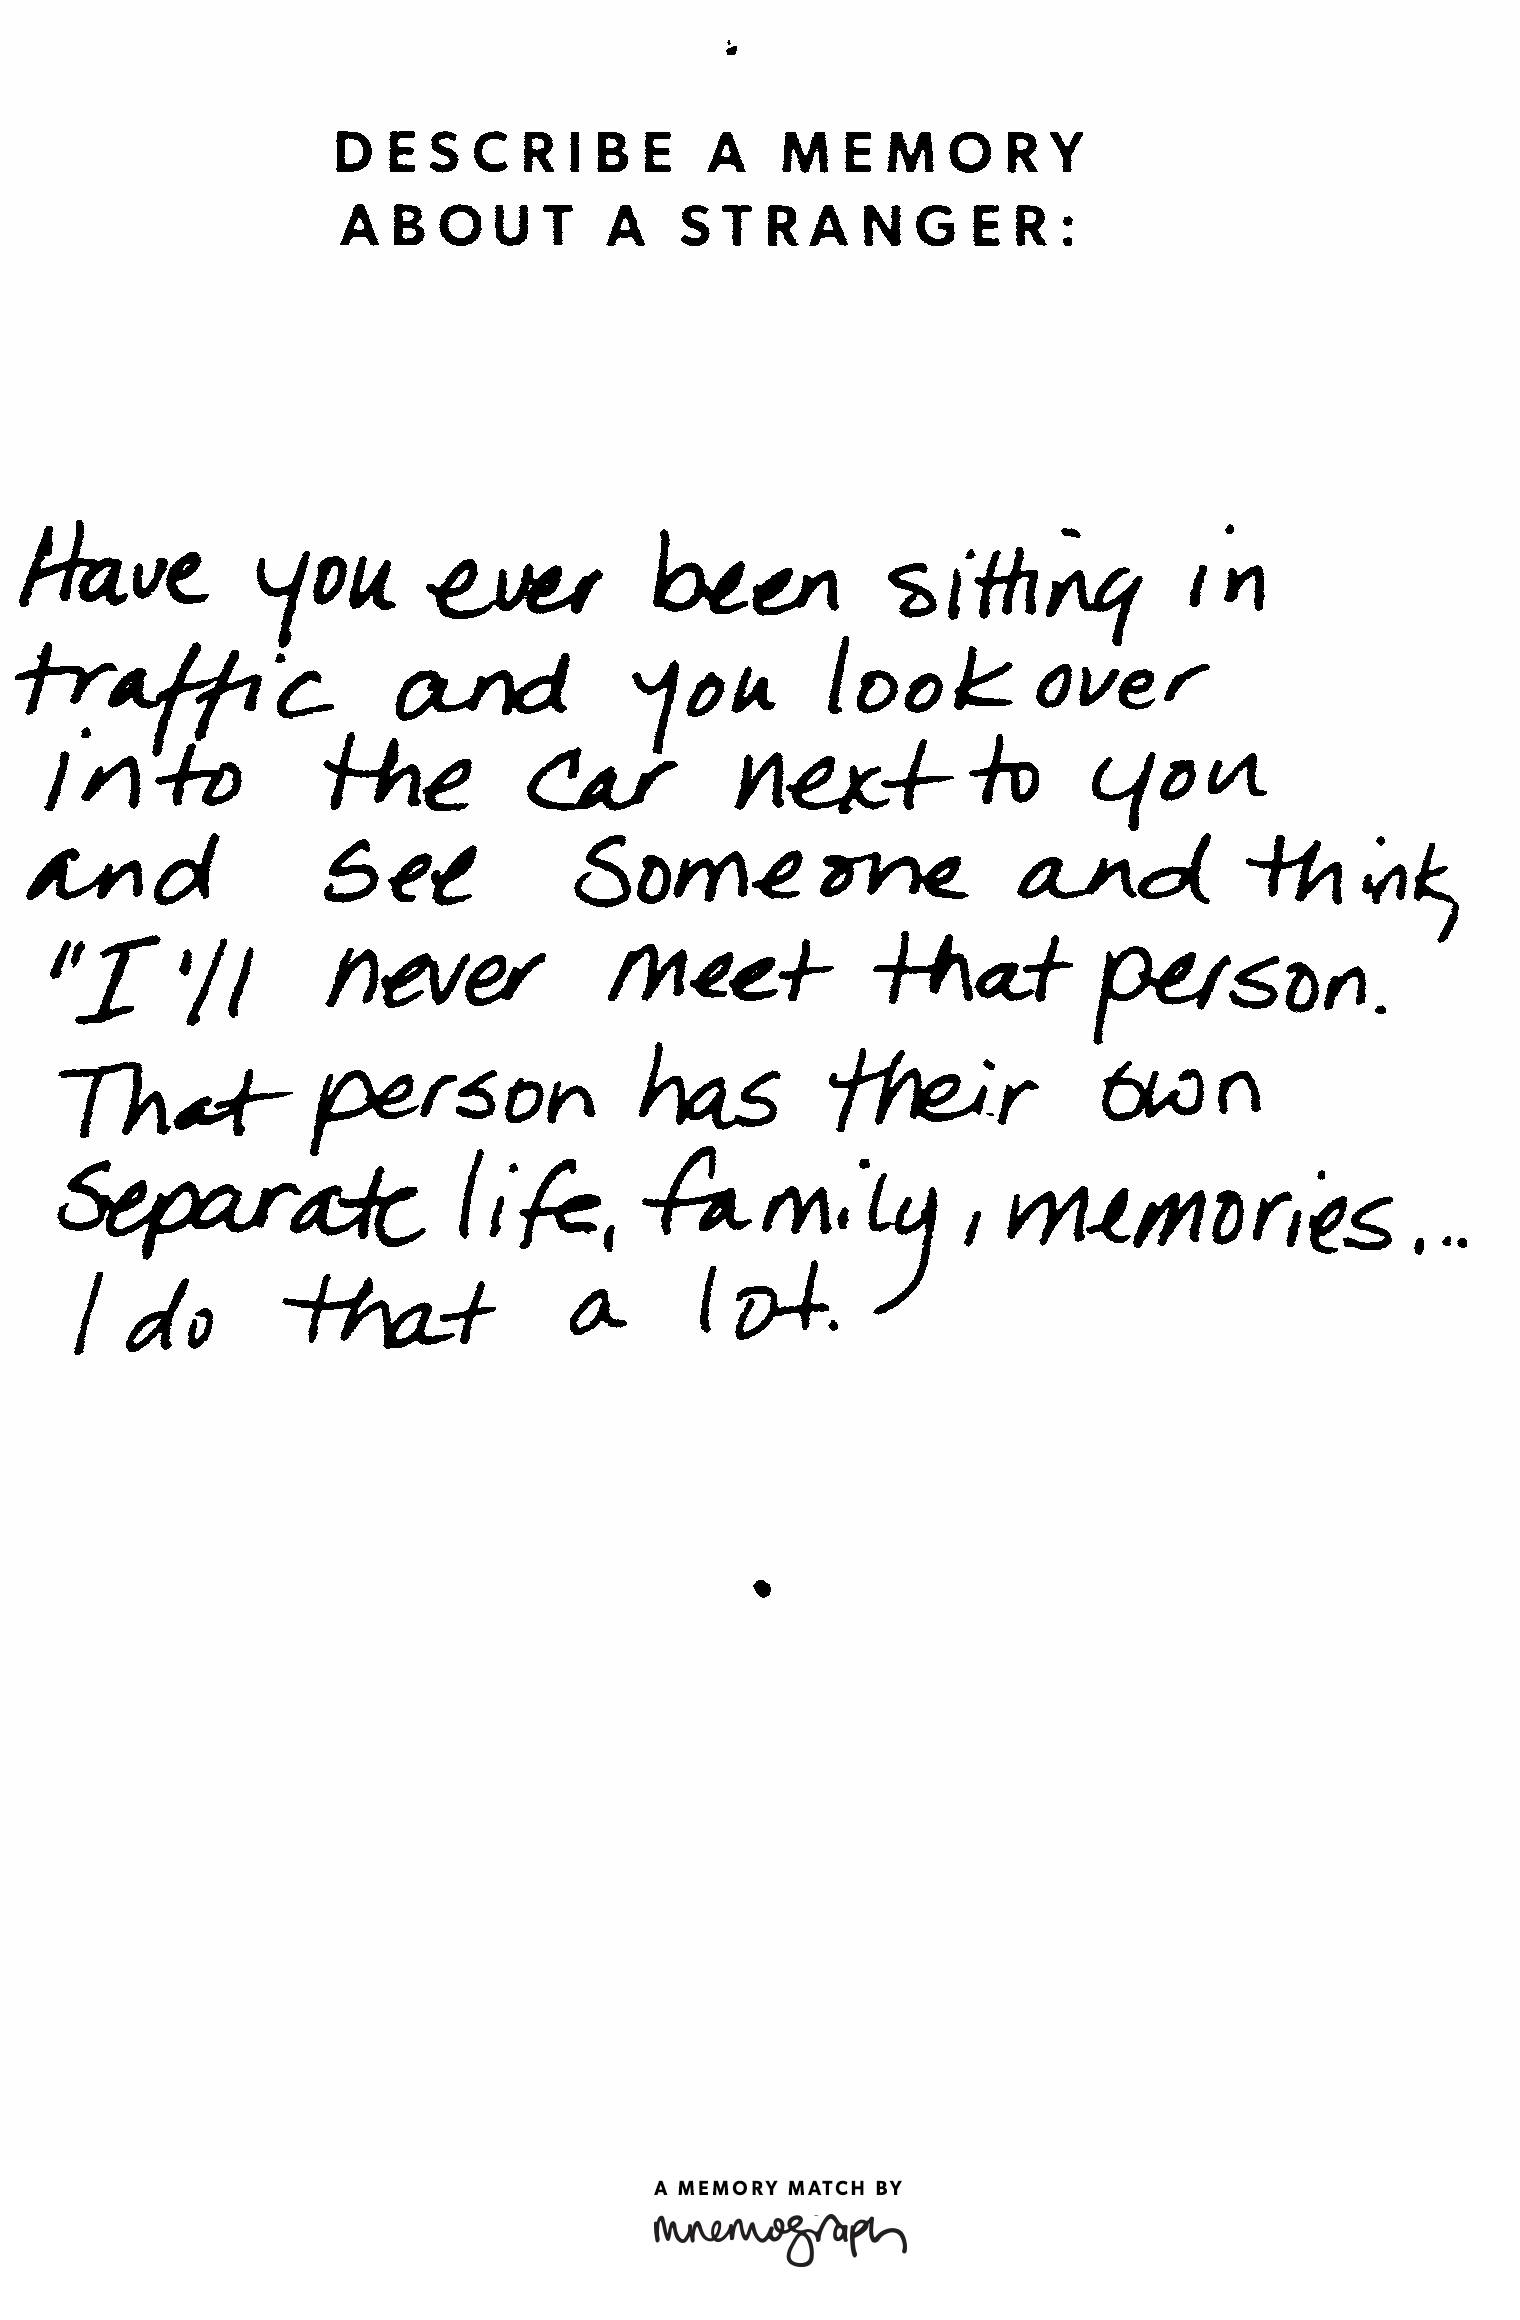 DESCRIBE A MEMORY
ABOUT A STRANGER:
Have you ever been sitting in
traffic and you look over
into the car next to you
and see someone and think,
"I'll never meet that person.
That person has their own
separate life, family, memories...
I do that a lot.
A MEMORY MATCH BY
mnemograph